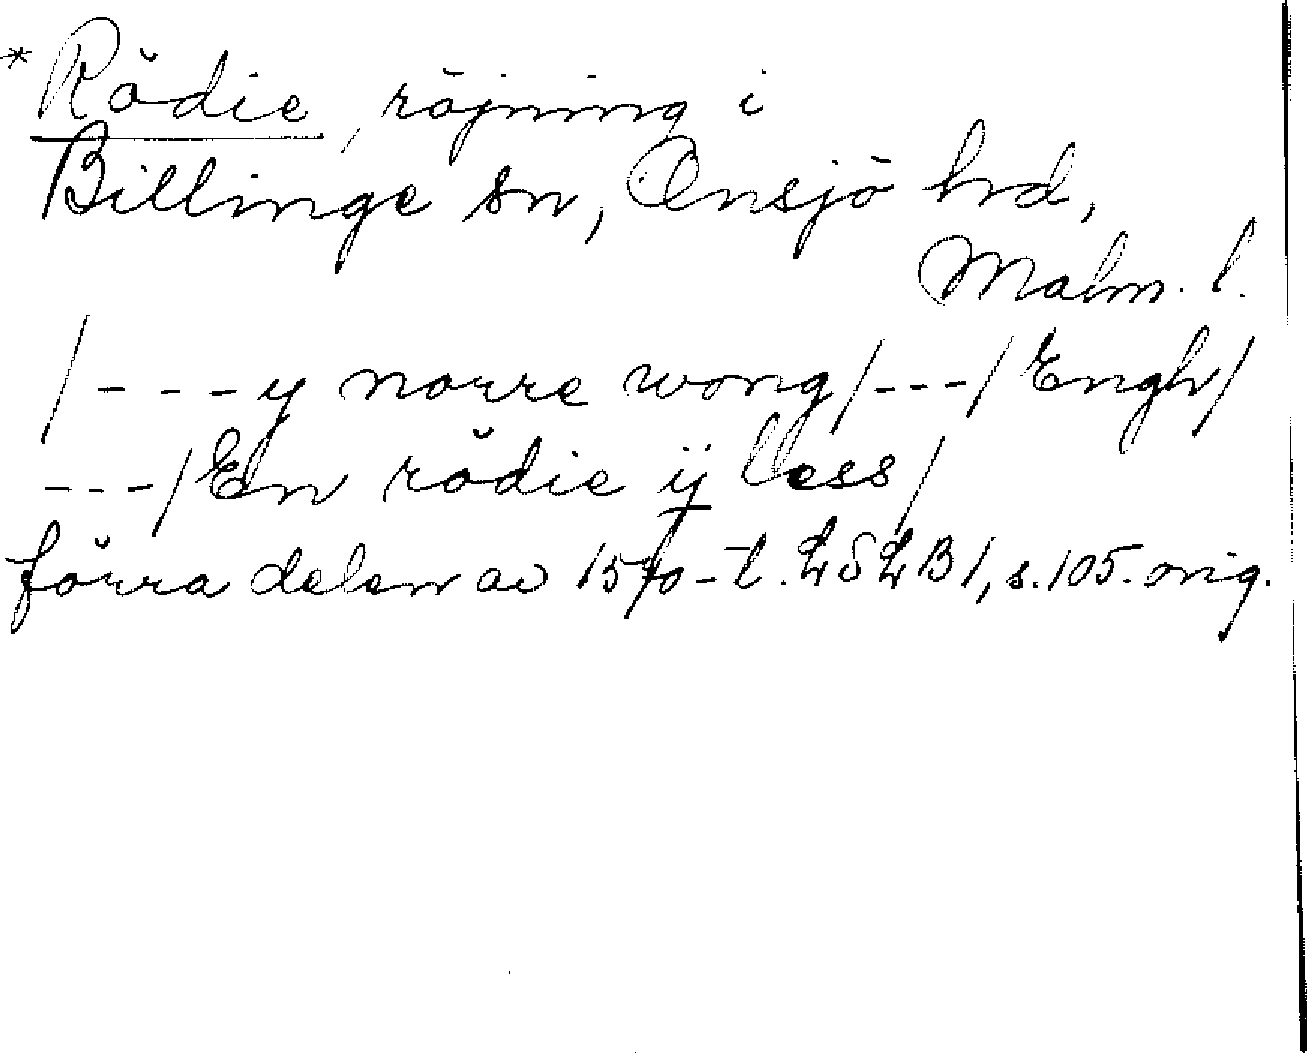 * Rödie, röjning i
Billinge sn, Onsjö hd,
Malm. l.
/---y norre wong/---/Engh/
---/En rödie ÿ less/
förra delen av 1570-t. LSLB 1, s. 105. orig.